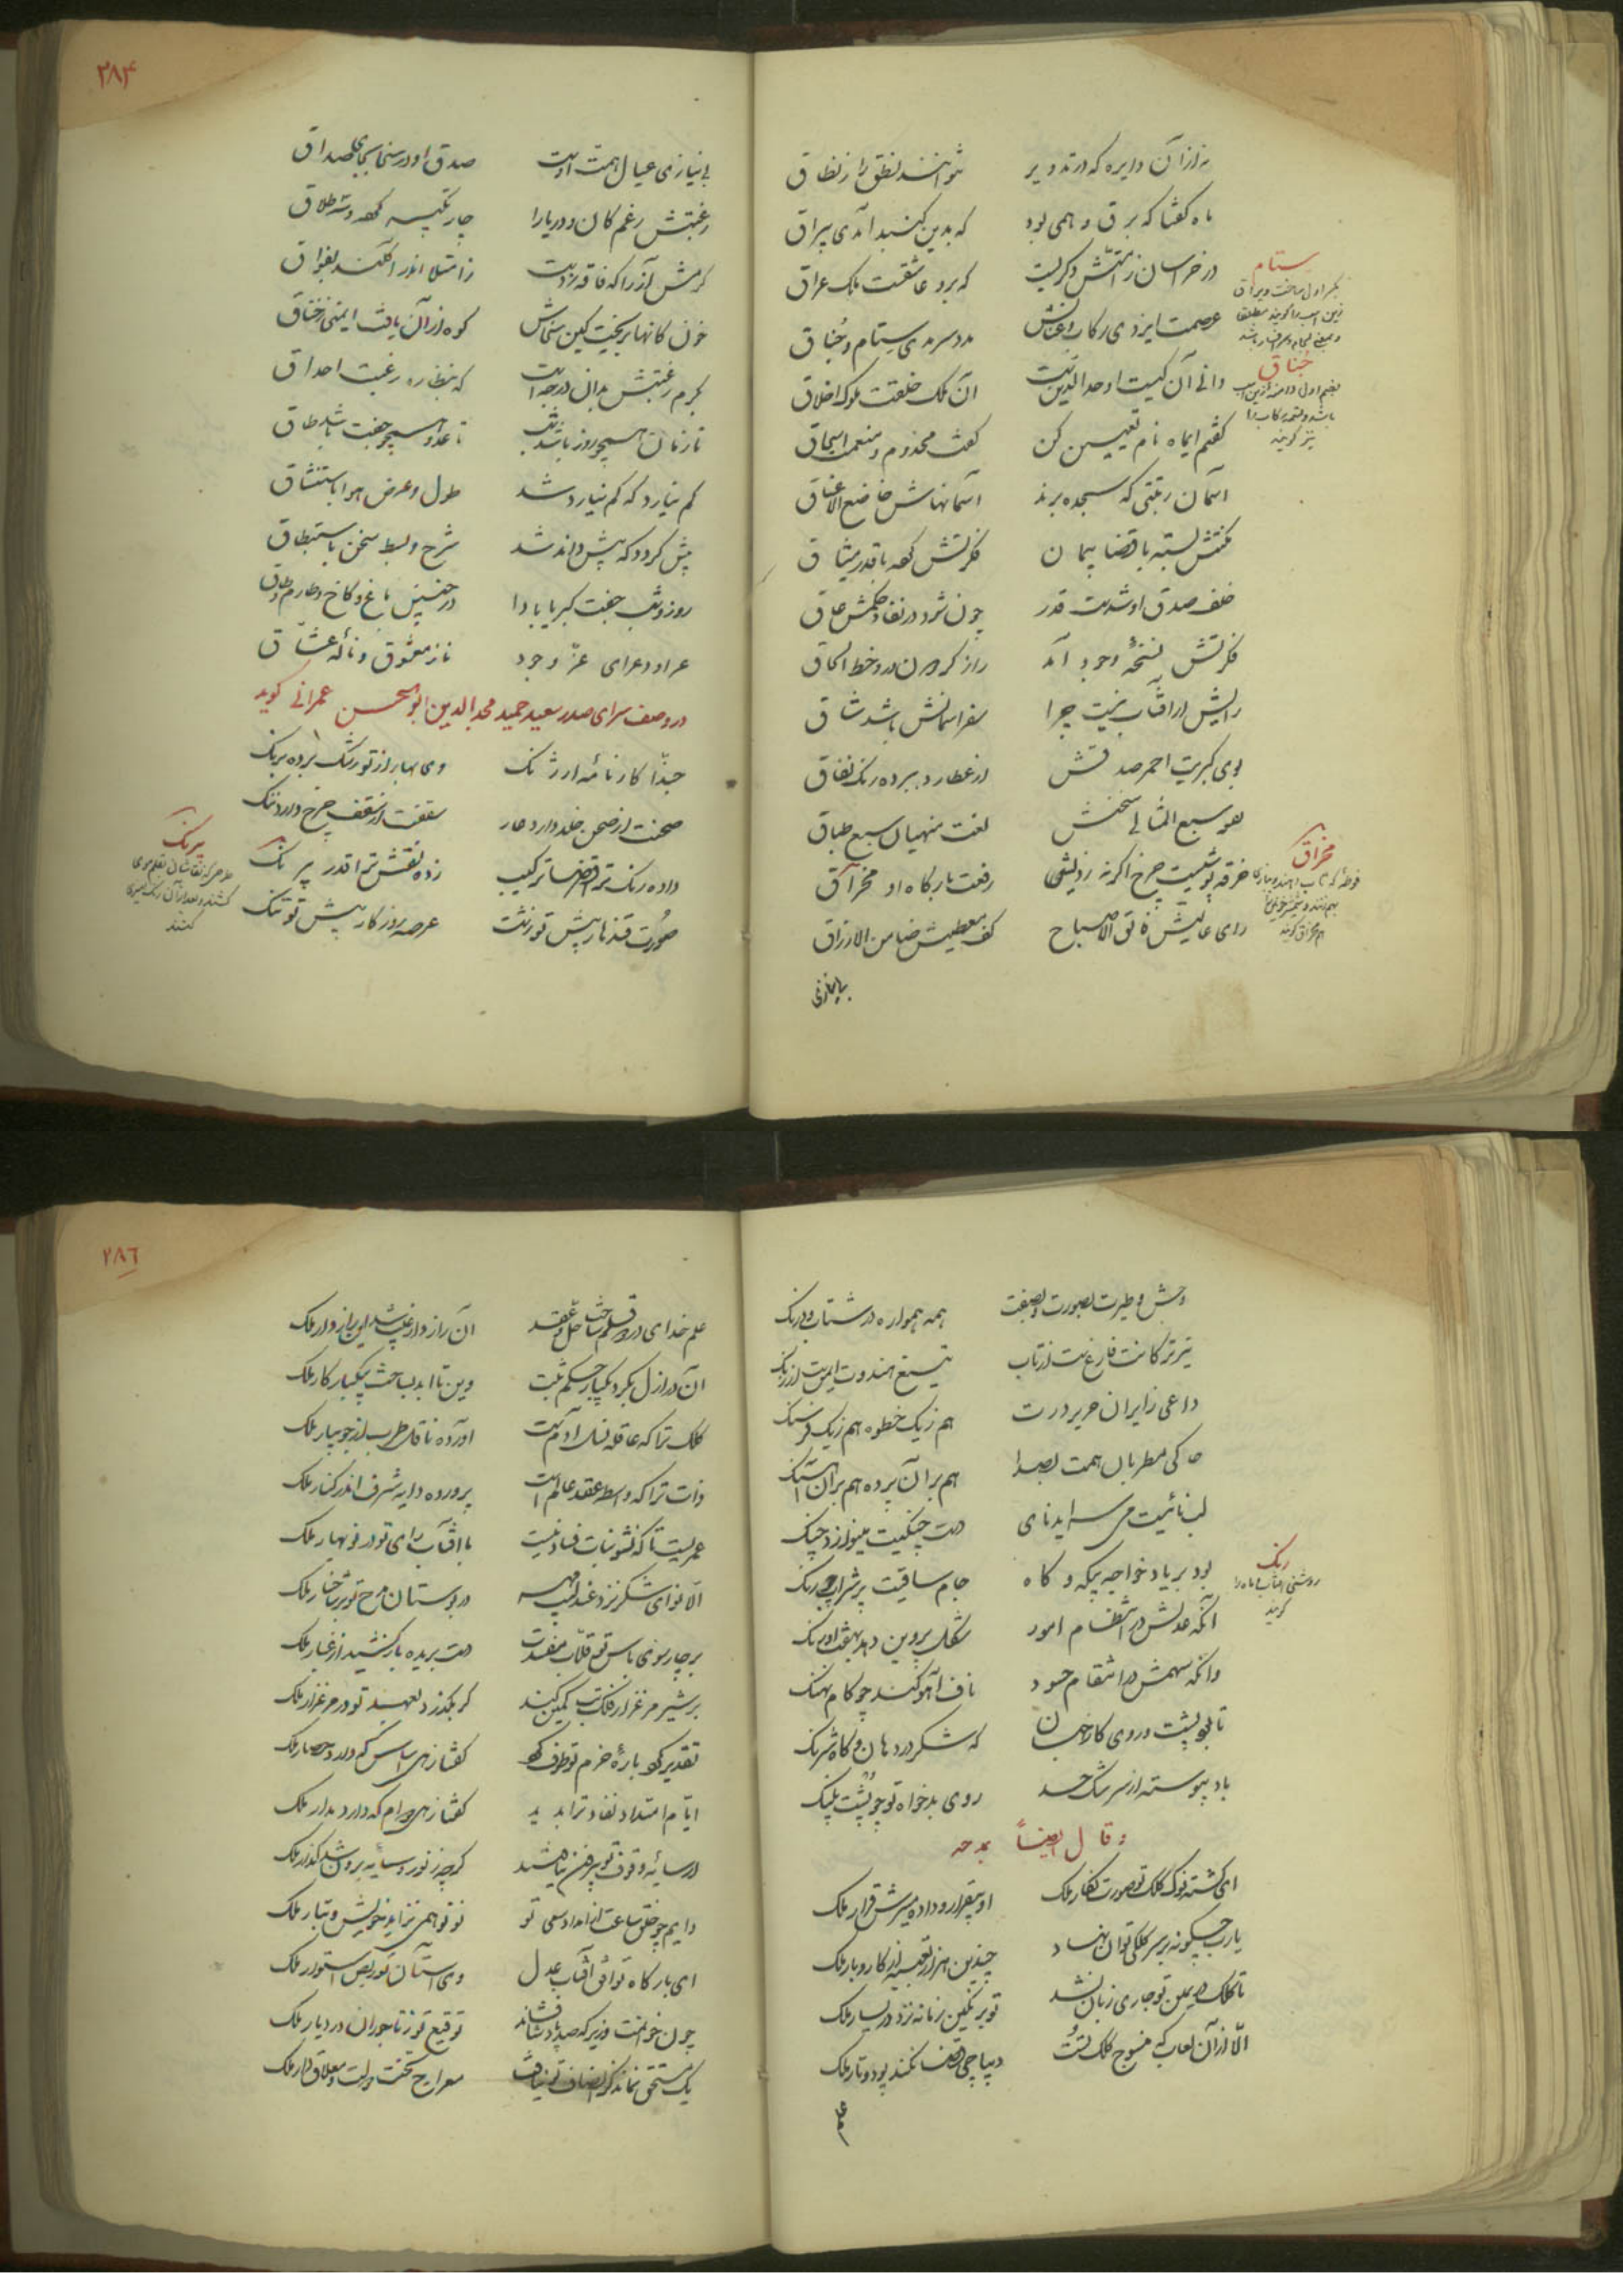 نه از آن دایره که در تدویر نتوانند نطق را ز نطاق
ماه گفتا که برق وهمی بود که بدین گنبد آمدی ببراق
در خراسان ز امتش دگریست که برد عاشقست ملک عراق
عصمت ایزدی رکاب و عنانش مدد سرمدی ستام و جناق
دانی آن کیست اوحدالدین است آن ملک خلقت ملوک اخلاق
گفتم ای ماه نام تعیین کن گفت مخدوم و منعمت اسحاق
آسمان رتبتی که سجده برند آسمانهاش خاضع الاعناق
مکنتش بسته با قضا پیمان فکرتش کرده با قدر میثاق
خلف صدق او شدست قدر چون شود در نفاذ حکمش عاق
فکرتش نسخهٔ وجود آمد راز گردون درو خط الحاق
رایش ار آفتاب نیست چرا سفر آسمانش باشد شاق
بوی کبریت احمر صدقش از عطارد ببرده رنگ نفاق
بعد سبع المثانی سخنش لغت منهیان سبع طباق
خرقه پوشیست چرخ اگر نه زدیش رفعت بارگاه او مخراق
رای عالیش فالق الاصباح کف معطیش ضامن الارزاق
بی نیازی
ستام
بکسر اول ساخت و یراق
زین اسب را گویند مطلقا
جناق
بضم اول دامنه زین اسب
باشد و تسمه رکاب را
نیز گویند
مخراق
۲۸۴
بی نیازی عیال همت اوست صدق او در سخا بجای صداق
رغبتش رغم کان و دریا را چار تکبیر کرده و سه طلاق
کرمش آز را که فاقه زدست ز امتلا اندر افکند بفواق
خون کانها بریخت کین سخاش کوه از آن یافت ایمنی ز خناق
کرم رغبتش بدان درجه است که بنظاره رغبت احداق
تا زمان همچو روز باشد و شب تا عدد همچو جفت باشد و طاق
کم نیارد که کم نیارد شد طول و عرض هوا باستنشاق
بیش گردد که بیش داند شد شرح و بسط سخن باستنطاق
روز و شب جفت کبریا بادا در چنین باغ و کاخ و طارم و طاق
ناز معشوق و نالهٔ عشاق
در وصف سرای صدر سعید حمید مجدالدین ابوالحسن عمرانی گوید
حبذا کارنامهٔ ارژنگ وی بهار از تو رشک برده برنگ
صحنت از صحن خلد دارد عار سقفت از سقف چرخ دارد ننگ
داده رنگ ترا قضا ترکیب زده نقش ترا قدر بیرنگ
صورت قندهار پیش تو زشت عرصهٔ روزگار پیش تو تنگ
بیرنگ
کنند
وحش و طیرت بصورت و بصفت همه همواره در شتاب و درنگ
تیر ترکانت فارغست از تاب تیغ هندوت ایمنست از زنگ
داعی زایران صریر درت هم ز یک خطوه هم ز یک فرسنگ
حاکی مطربان همت بصدا هم بر آن پرده هم بر آن آهنگ
لب نائیت می سراید نای دست چنگیت مینوازد چنگ
بود بر یاد خواجه بیگه و گاه جام ساقیت پر شراب چو رنگ
آنکه عدلش در انتظام امور شکل پروین دهد بهفت اورنگ
وانکه سهمش در انتقام حسود ناف آهو کند چو کام نهنگ
تا بود پشت و روی کار جهان گه شکر در دهان و گاه شرنگ
باد پیوسته از سرشک حسد روی بدخواه تو چو پشت پلنگ
رنگ
روشنی مهتاب یا ماه را
گویند
و قال ایضاً بمدحه
ای گشته نوک کلک تو صورت نگار ملک او بیقرار و داده مسیرش قرار ملک
یارب چگونه بر سر کلکی توان نهاد چندین هزار تعبیه از کار و بار ملک
تا کلک در یمین تو جاری زبان نشد تو بر نگین زمانه نزد در یسار ملک
الا از آن لعاب که منسوج کلک تست دیباچهٔ قضا نکند پود و تار ملک
علم
۲۸۶
علم خدای در دو قلم ساخت حل و عقد آن رازدار غیب شد این رازدار ملک
آن در ازل بکرد یکبار حکم ثبت وین تا ابد بساخت بیکبار کار ملک
کلک ترا که عاقلهٔ نسل آدم است آورده ناقلان طرب از جویبار ملک
ذات ترا که واسطهٔ عقد عالم است پرورده دایهٔ شرف اندر کنار ملک
عمریست تا که نشو نبات فساد نیست با آفتاب رای تو در نوبهار ملک
الا نوای شکر نزد عندلیب در بوستان مدح تو بر شاخسار ملک
بر چارسوی باس تو قلاب مفسدت دست بریده باز کشید از عیار ملک
بر شیر مرغزار فلک تب کمین کند گر بگذرد بعهد تو در مرغزار ملک
تقدیر گرد بارهٔ حزم تو طوف کرد گفتا زهی اساس که دارد حصار ملک
ایام امتداد نفاذ ترا بدید گفتا زهی دوام که دارد مدار ملک
از سایهٔ وقوف تو بیرون نیافتند گر چه ز نور و سایه برون شد گذار ملک
دایم چو خلق ساعت از امداد سعی تو نو نو همی نزاید خویش و تبار ملک
ای بارگاه تو افق آفتاب عدل وی آستان تو ربض استوار ملک
چون خوانمت وزیر که صد پادشا نشاند توقیع تو ز تاجوران در دیار ملک
یک مستحق نماند کز انصاف تو نیافت معراج تخت دولت و معلاق دار ملک